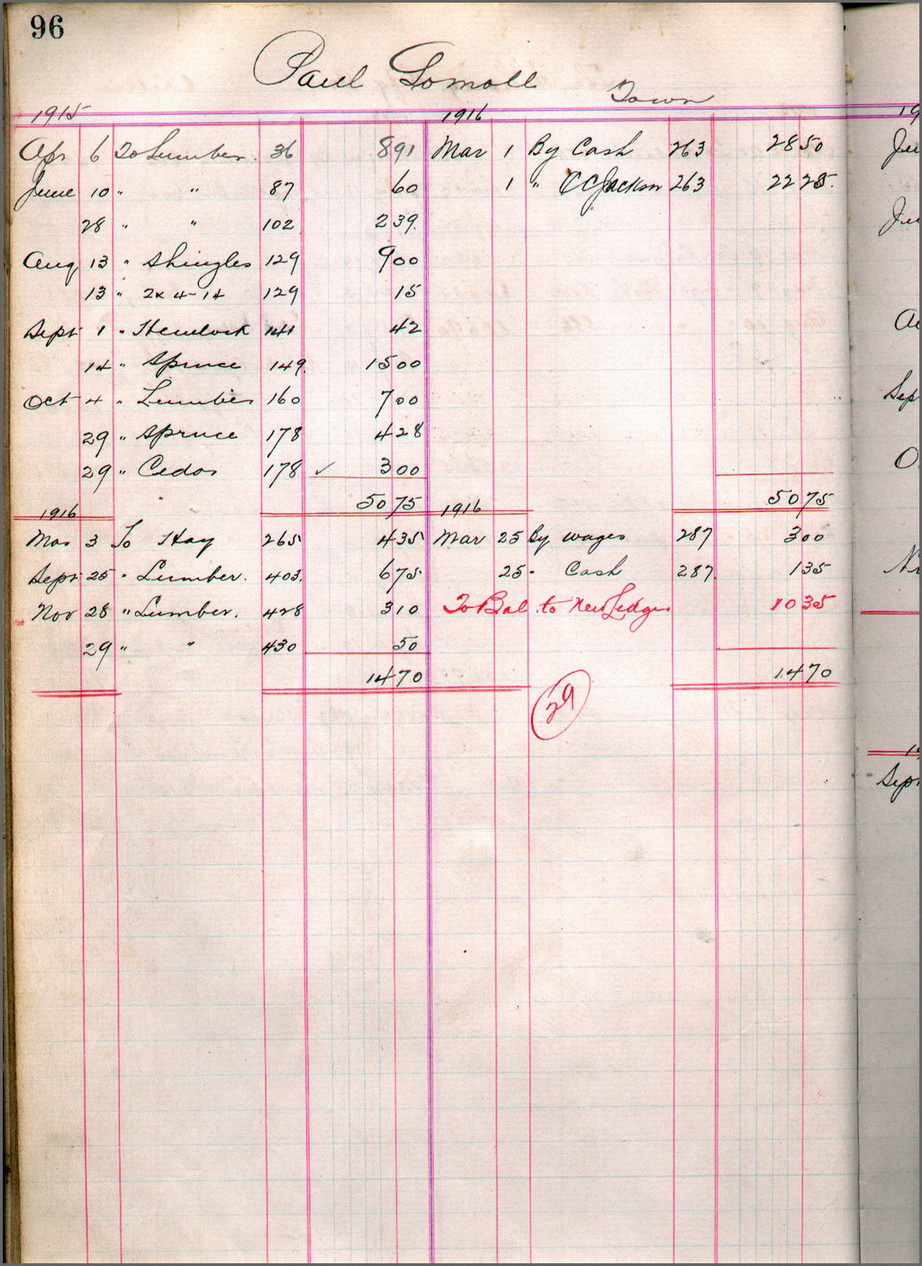 96
Paul Gomoll
Town
1915 1916
Apr 6 To Lumber. 36 891 Mar 1 By Cash 263 2850
June 10 " " 87 60 1 " C C Jackson 263 2225.
28 " " 102 239.
Aug 13 " Shingles 129 900
13 " 2x4-14 129 15
Sept 1 " Hemlock 141 42
14 " Spruce 149. 1500
Oct 4 " Lumber 160 700
29 " Spruce 178 428
29 " Cedar 178 ✓ 300
5075 5075
1916 1916
Mar 3 To Hay 265 435 Mar 25 By wages 287 300
Sept 25 " Lumber. 403. 675 25 " Cash 287. 135
Nov 28 " Lumber. 428 310 To Bal to New Ledger 1035
29 " " 430 50
1470 1470
29